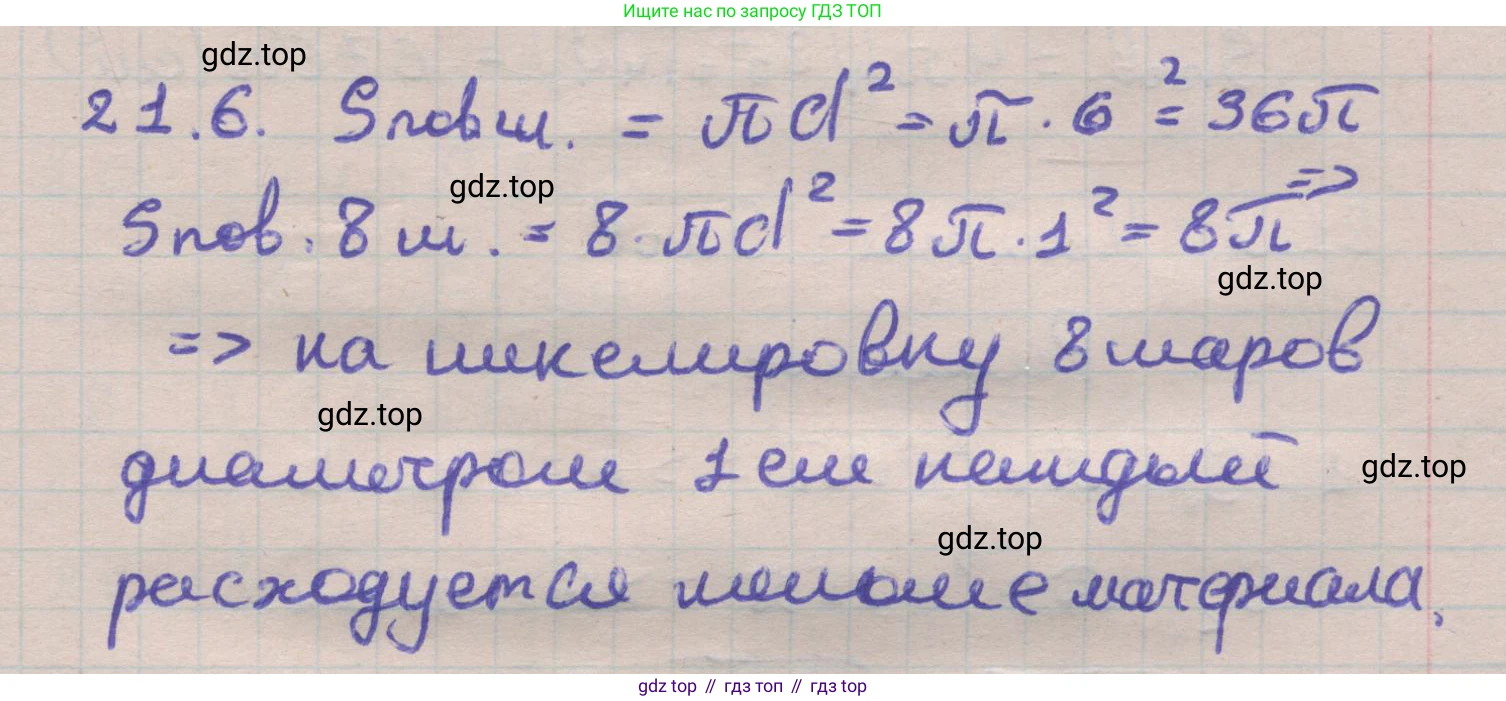 Ищите нас по запросу ГДЗ ТОП
gdz.top
21.6. Sпов ш. = πd² = π · 6² = 36π
gdz.top
Sпов. 8 ш. = 8 · πd² = 8π · 1² = 8π =>
gdz.top
=> на никелировку 8 шаров
gdz.top
диаметром 1 см каждый
gdz.top
gdz.top
расходуется меньше материала.
gdz top // гдз топ // гдз top